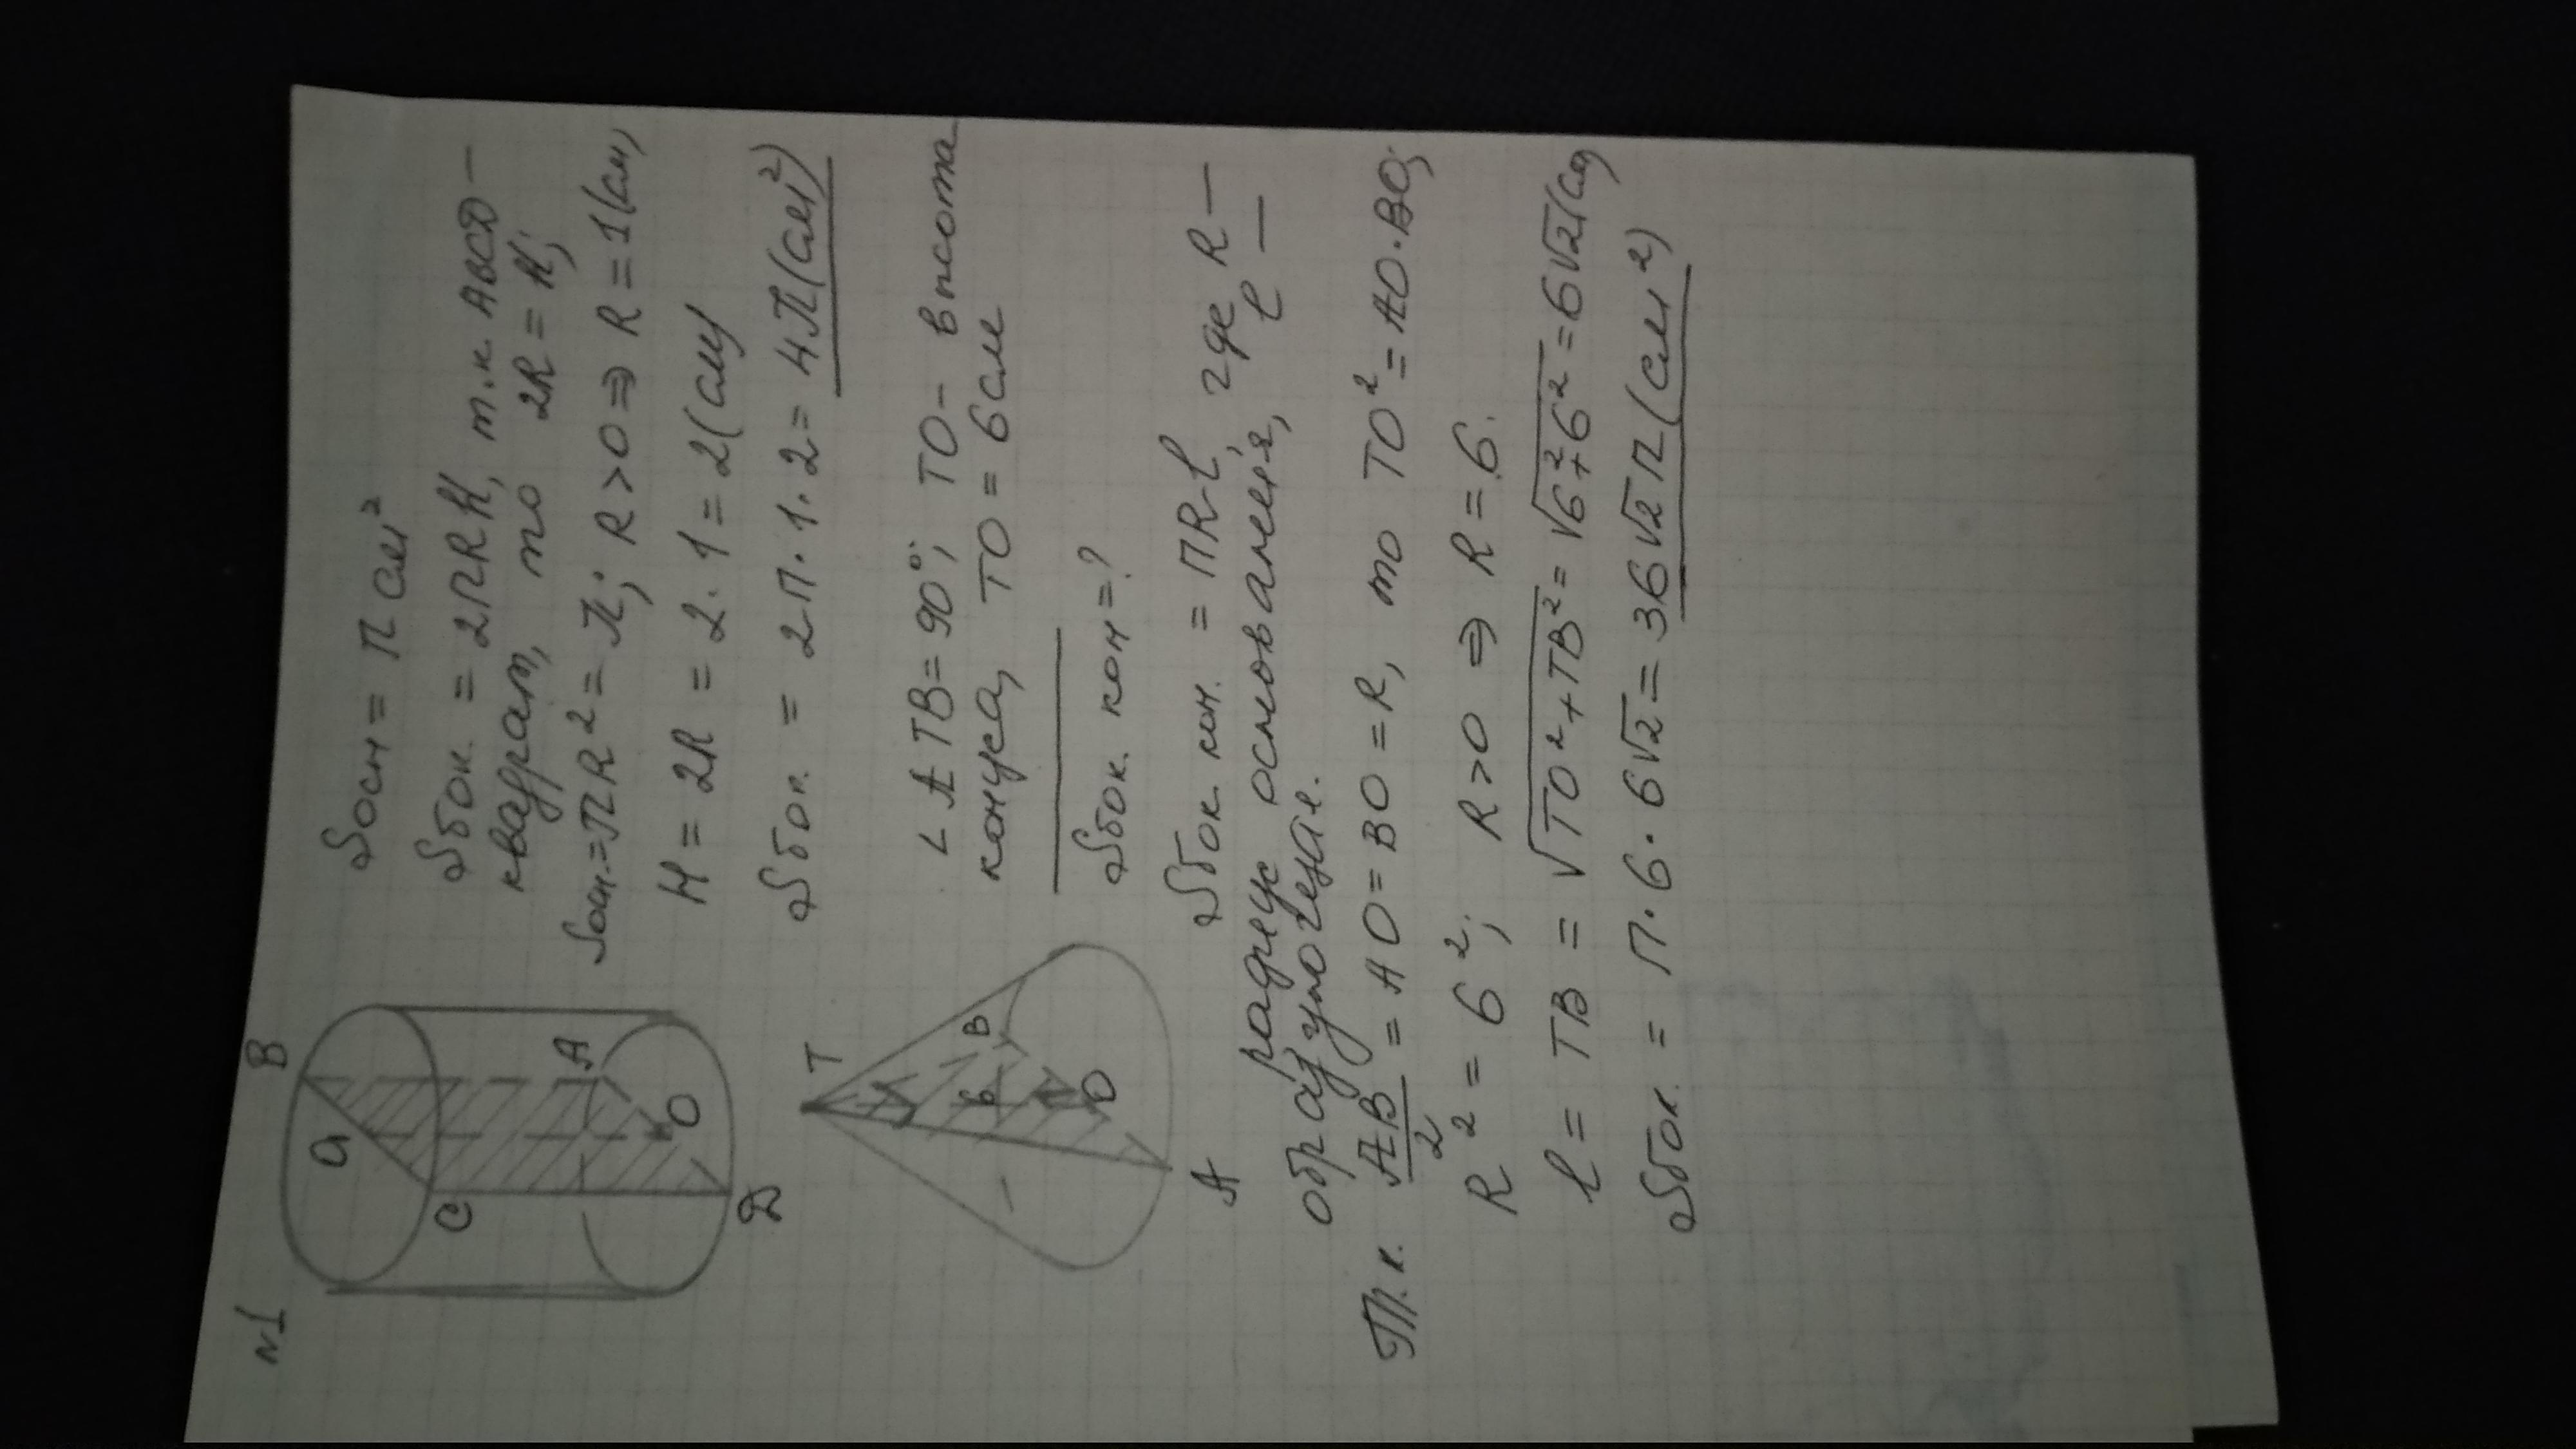 №1
B
O
C
A
O
D
Sосн = П см²
Sбок. = 2ПRH, т.к ABCD –
квадрат, то 2R = H;
Sосн.=ПR² = П; R>0 ⇒ R = 1(см)
H = 2R = 2·1 = 2(см)
Sбок. = 2П·1·2 = 4П(см²)
T
B
6
O
A
∠ATB=90°; TO– высота
конуса, TO = 6см
Sбок. кон=?
Sбок. кон. = ПRℓ, где R –
радиус основания, ℓ –
образующая.
Т.к. AB/2 = AO=BO=R, то TO²=AO·BO;
R² = 6²; R>0 ⇒ R = 6.
ℓ = TB = √TO²+TB² = √6²+6² = 6√2(см)
Sбок. = П·6·6√2 = 36√2П(см²)